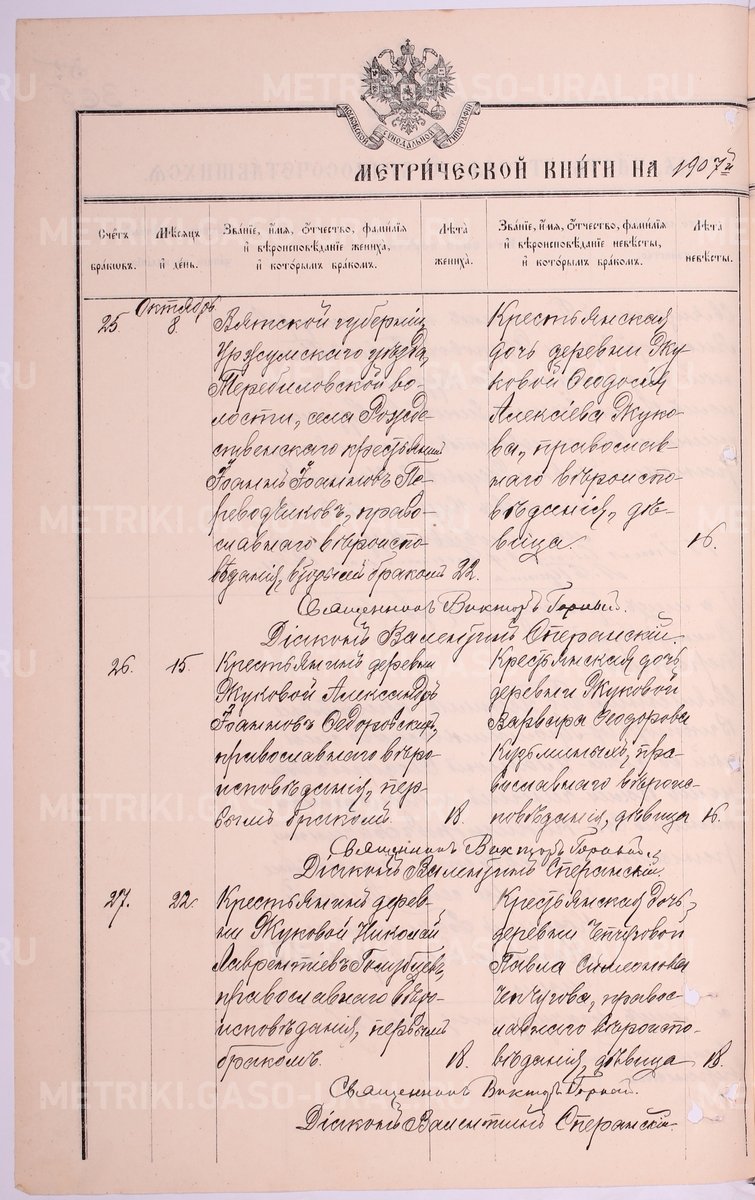 МОСКОВСКОЙ СѴНОДАЛЬНОЙ ТИПОГРАФІИ
МЕТРИ́ЧЕСКОЙ КНИ́ГИ НА 1907й
Сче́тъ браковъ.
Мѣсяцъ и день.
Зва́нїе, и́мя, ѻ́тчество, фами́лїя и҆ вѣроисповѣ́данїе жениха, и҆ кото́рымъ бра́комъ.
Лѣта̀ жениха̀.
Зва́нїе, и́мя, ѻ́тчество, фами́лїя и҆ вѣроисповѣ́данїе невѣ́сты, и҆ кото́рымъ бра́комъ.
Лѣта̀ невѣ́сты.
25
Октябрь
8
Вятской губерніи,
Уржумскаго уѣзда,
Теребиловской во-
лости, села Рожде-
ственскаго крестьянинъ
Іоаннъ Іоанновъ Пе-
реводчиковъ, право-
славнаго вѣроиспо-
вѣданія, вторымъ бракомъ
22.
Крестьянская
дочь деревни Жу-
ковой Ѳеодосія
Алексіева Жуко-
ва, православ-
наго вѣроиспо-
вѣданія, дѣ-
вица.
16.
Священникъ Викторъ Горный.
Діаконъ Валентинъ Сперанскій.
26.
15.
Крестьянинъ деревни
Жуковой Александръ
Іоанновъ Ѳедоровскихъ,
православнаго вѣро-
исповѣданія, пер-
вымъ бракомъ
18.
Крестьянская дочь
деревни Жуковой
Варвара Ѳеодорова
Кузьминыхъ, пра-
вославнаго вѣроис-
повѣданія, дѣвица
16.
Священникъ Викторъ Горный.
Діаконъ Валентинъ Сперанскій.
27.
22.
Крестьянинъ дерев-
ни Жуковой Николай
Лаврентіевъ Голубцевъ,
православнаго вѣро-
исповѣданія, первымъ
бракомъ.
18.
Крестьянская дочь
деревни Чепчуговой
Павла Симеонова
Чепчугова, правос-
лавнаго вѣроиспо-
вѣданія, дѣвица
18.
Священникъ Викторъ Горный.
Діаконъ Валентинъ Сперанскій.
METRIKI.GASO-URAL.RU